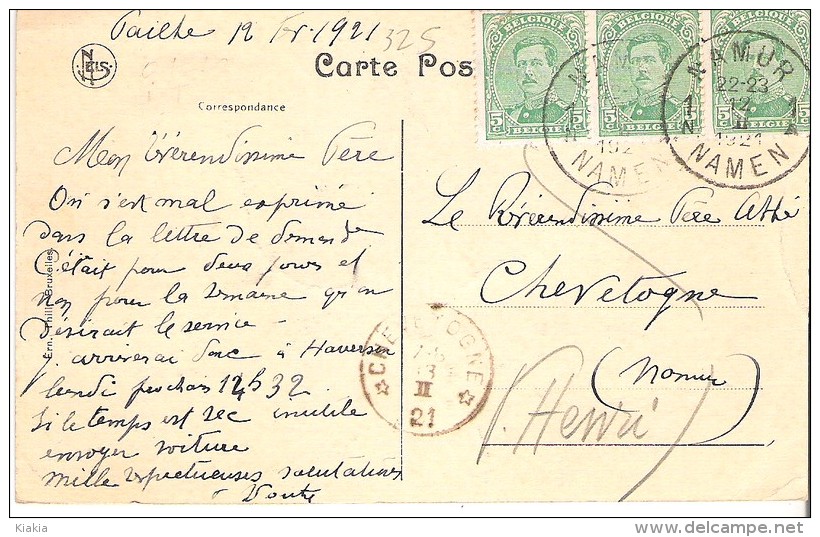 Pailhe 12 Fr. 1921
325
NELS
Carte Pos
BELGIQUE BELGIQUE BELGIQUE
5c 5c 5c 5c 5c
BELGIE BELGIE BELGIE
NAM
192
NAMEN
NAMUR
22-23
12
II
1921
NAMEN
Correspondance
Mon Révérendissime Père
On s'est mal exprimé
dans la lettre de demande
C'était pour deux jours et
non pour la semaine qu'on
désirait le service -
J'arriverai donc à Haversin
lundi prochain 14h32
Si le temps est sec inutile
envoyer voiture
Mille respectueuses salutations
Ern. Thill, Bruxelles
Le Révérendissime Père Abbé
Chevetogne
(Namur)
Henri
CHEVETOGNE
13
II
21
Kiakia
delcampe.net